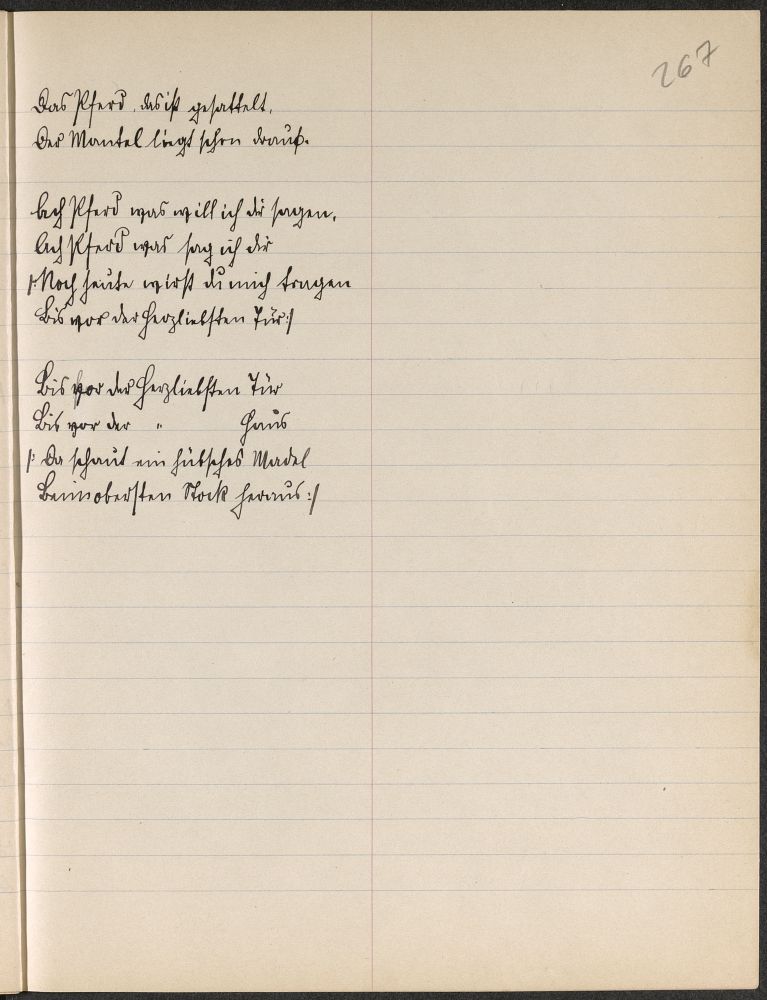 267
Das Pferd, das ist gesattelt,
Der Mantel liegt schon drauf.
Ach Pferd was will ich dir sagen,
Ach Pferd was sag ich dir
|: Noch heute wirst du mich tragen
Bis vor der Herzliebsten Tür :|
Bis vor der Herzliebsten Tür
Bis vor der " Haus
|: Da schaut ein hübsches Madel
Beim obersten Stock heraus :|